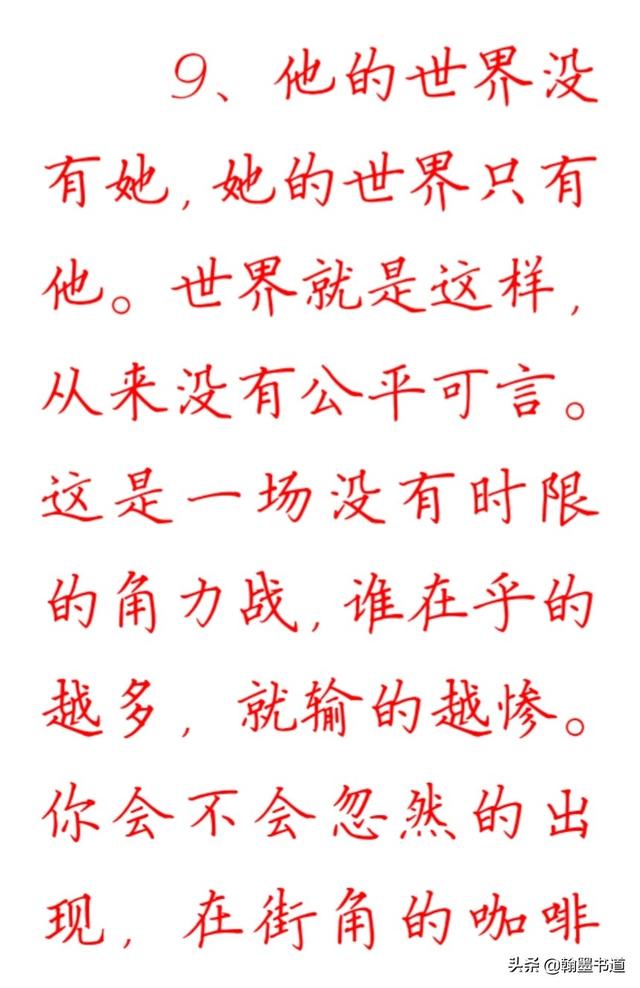 9、他的世界没
有她,她的世界只有
他。世界就是这样,
从来没有公平可言。
这是一场没有时限
的角力战,谁在乎的
越多,就输的越惨。
你会不会忽然的出
现,在街角的咖啡
头条 @翰墨书道